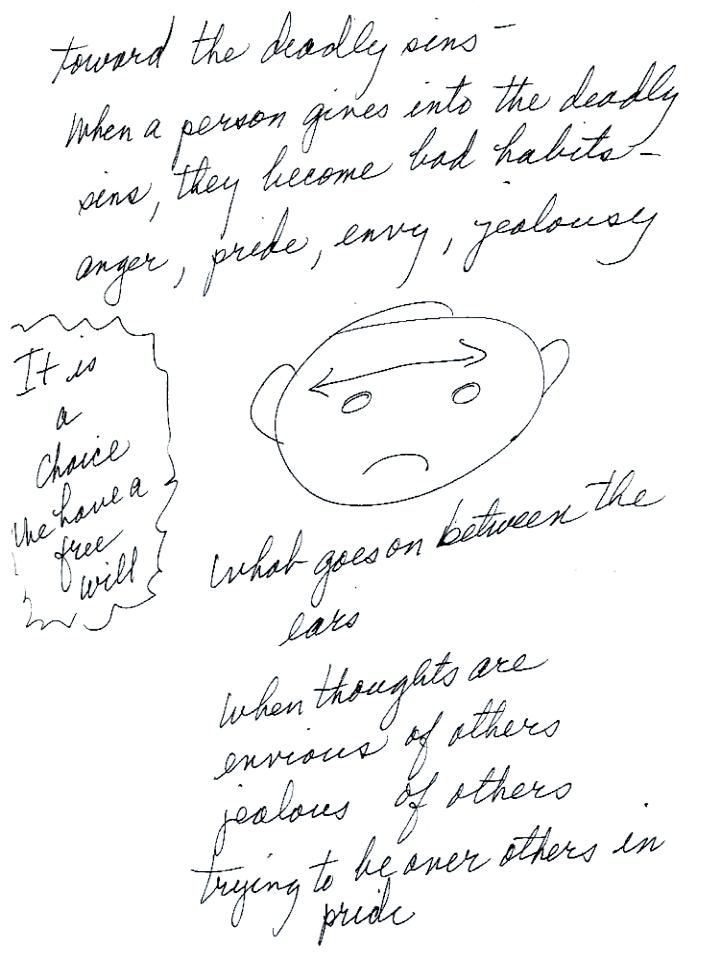 toward the deadly sins -
When a person gives into the deadly
sins, they become bad habits -
anger, pride, envy, jealousy
It is
a
choice
We have a
free
will
What goes on between the
ears
When thoughts are
envious of others
jealous of others
trying to be over others in
pride